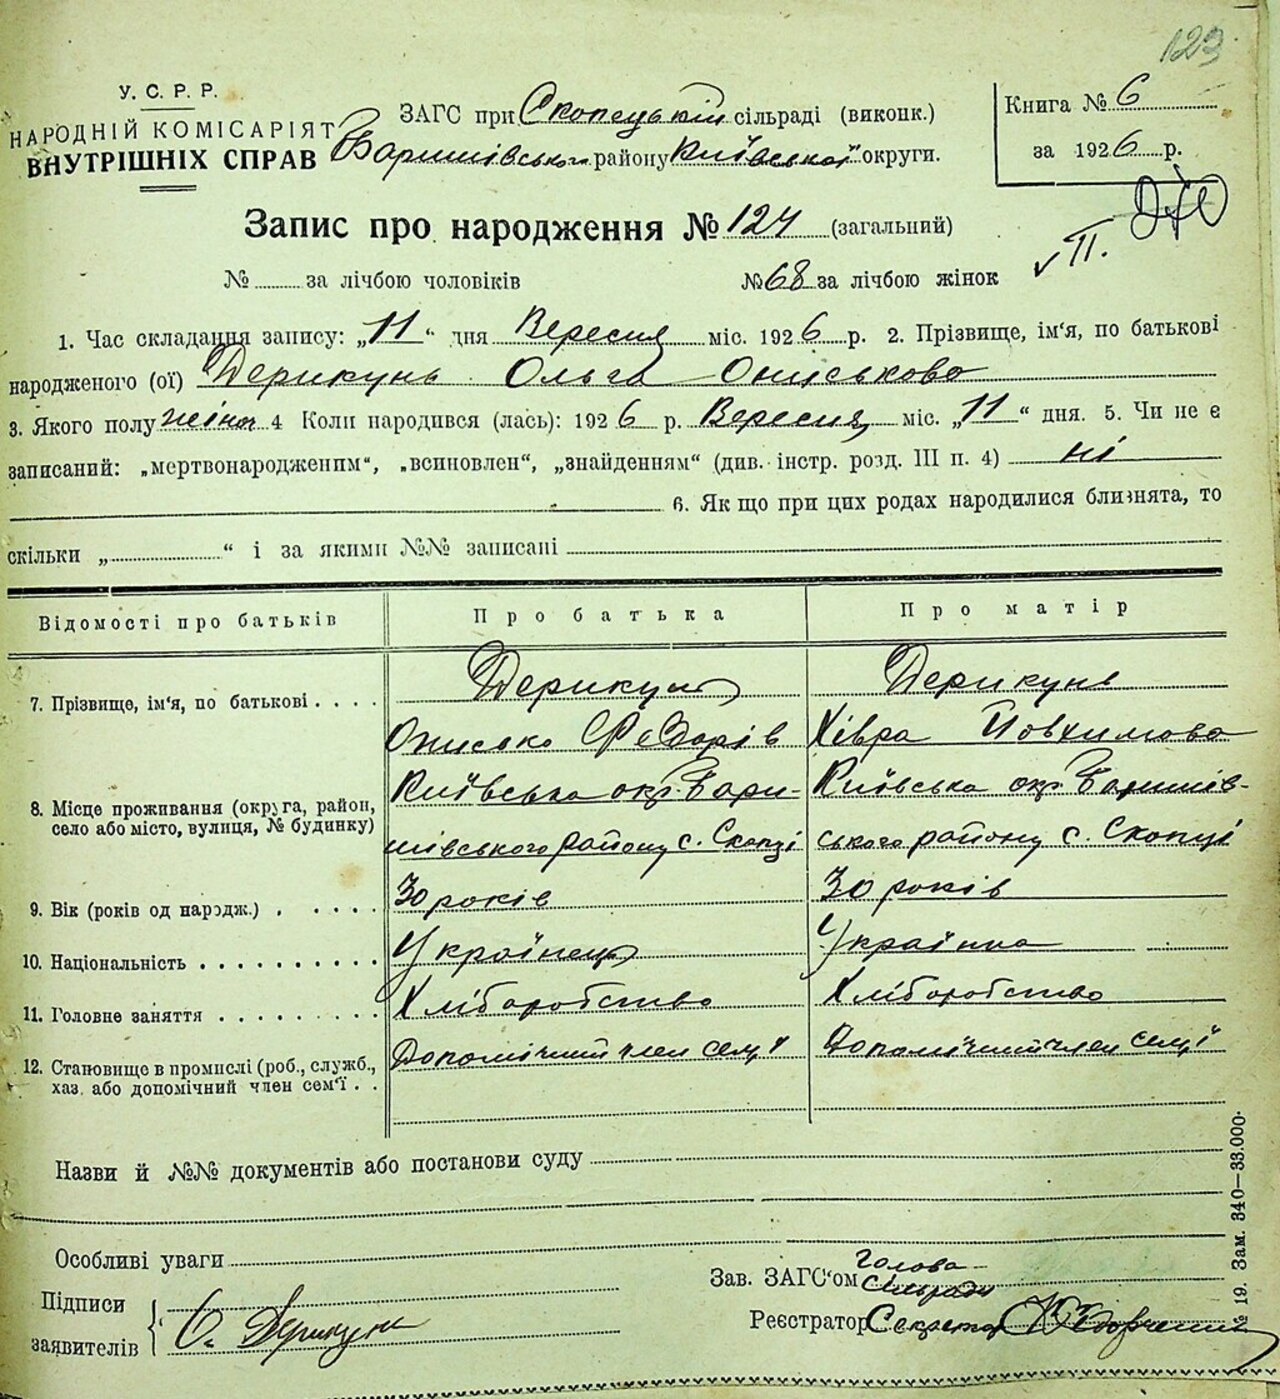 123
У. С. Р. Р.
НАРОДНІЙ КОМІСАРІЯТ
ВНУТРІШНІХ СПРАВ
ЗАГС при Скопецькій сільраді (виконк.)
Баришівського району Київської округи.
Книга № 6
за 1926 р.
Запис про народження № 124 (загальний)
II.
№ за лічбою чоловіків № 68 за лічбою жінок
1. Час складання запису: „11“ дня Вересня міс. 1926 р. 2. Прізвище, ім'я, по батькові
народженого (ої) Дерикунь Ольга Ониськово
3. Якого полу жіноч 4 Коли народився (лась): 1926 р. Вересня міс. „11“ дня. 5. Чи не є
записаний: „мертвонародженим“, „всиновлен“, „знайденням“ (див. інстр. розд. III п. 4) ні
6. Як що при цих родах народилися близнята, то
скільки „ “ і за якими №№ записані
Відомості про батьків Про батька Про матір
7. Прізвище, ім'я, по батькові . . . . Дерикунь Дерикунь
Онисько Федорів Хівра Йовхимова
8. Місце проживання (округа, район, село або місто, вулиця, № будинку) Київська окр. Бари- Київська окр. Баришів-
шівського району с. Скопці ського району с. Скопці
9. Вік (років од народж.) . . . . . 30 років 30 років
10. Національність . . . . . . . . . . Українець Українка
11. Головне заняття . . . . . . . . . Хліборобство Хліборобство
12. Становище в промислі (роб., служб., хаз. або допомічний член сем'ї . . Допомічний член семї Допомічний член семї
Назви й №№ документів або постанови суду
Особливі уваги
Підписи
заявителів
О. Дерикунь
Зав. ЗАГС'ом Голова
Сільради
Реєстратор Секретар
№ 19. Зам. 340—33.000.